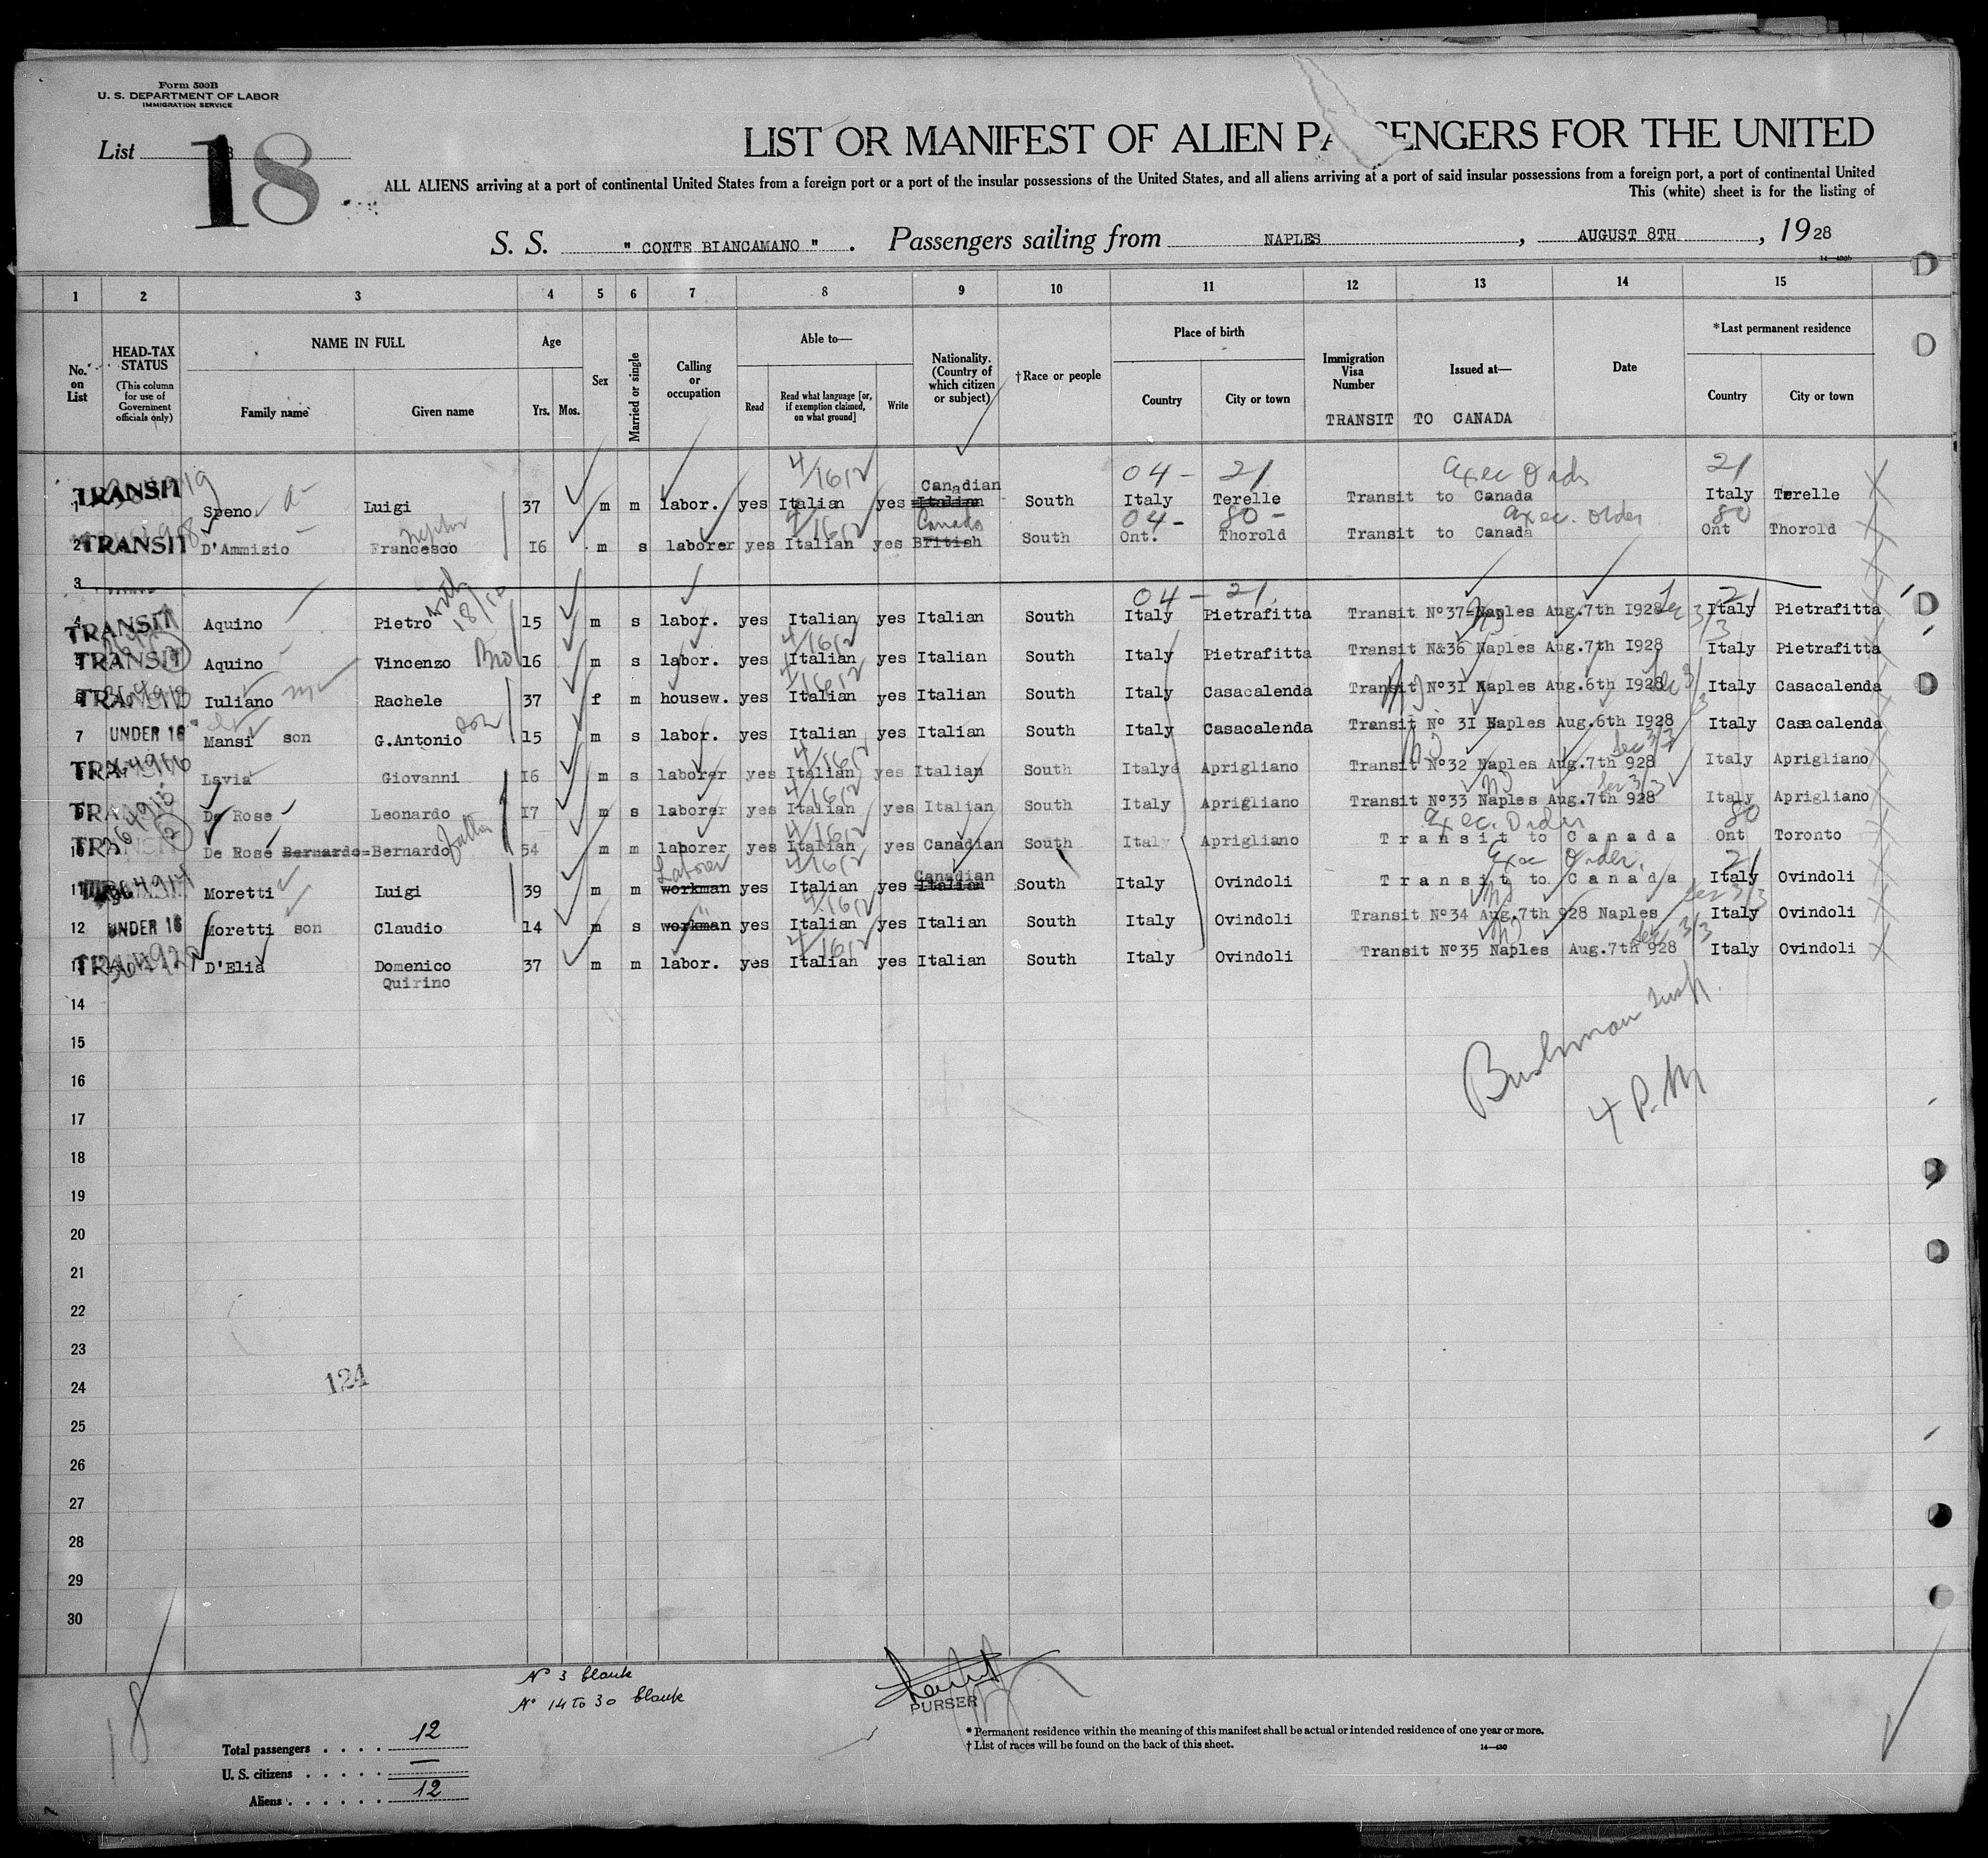 Form 500B
U. S. DEPARTMENT OF LABOR
IMMIGRATION SERVICE
List 18
LIST OR MANIFEST OF ALIEN PASSENGERS FOR THE UNITED
ALL ALIENS arriving at a port of continental United States from a foreign port or a port of the insular possessions of the United States, and all aliens arriving at a port of said insular possessions from a foreign port, a port of continental United
This (white) sheet is for the listing of
S. S. " CONTE BIANCAMANO " . Passengers sailing from NAPLES , AUGUST 8TH , 1928
1 2 3 4 5 6 7 8 9 10 11 12 13 14 15
No. on List
HEAD-TAX STATUS (This column for use of Government officials only)
NAME IN FULL
Family name Given name
Age
Yrs. Mos.
Sex
Married or single
Calling or occupation
Able to—
Read Read what language [or, if exemption claimed, on what ground] Write
Nationality. (Country of which citizen or subject)
†Race or people
Place of birth
Country City or town
Immigration Visa Number
Issued at—
Date
*Last permanent residence
Country City or town
TRANSIT TO CANADA
4/1612 04- 21 Exec Order 21
Canadian
1 TRANSIT Speno Luigi 37 m m labor. yes Italian yes Italian South Italy Terelle Transit to Canada Italy Terelle
nephew 4/1612 Canada 04- 80- Exec. Order 80
2 TRANSIT D'Ammizio Francesco 16 m s laborer yes Italian yes British South Ont. Thorold Transit to Canada Ont Thorold
3
04-21. 21
4 TRANSIT Aquino Pietro 15 m s labor. yes Italian yes Italian South Italy Pietrafitta Transit Nº37-Naples Aug.7th I928 Italy Pietrafitta
5 TRANSIT Aquino Vincenzo Bro 16 m s labor. yes Italian yes Italian South Italy Pietrafitta Transit N&36 Naples Aug.7th I928 Italy Pietrafitta
6 TRA Iuliano Rachele 37 f m housew. yes Italian yes Italian South Italy Casacalenda Transit Nº3I Naples Aug.6th I928 Italy Casacalenda
7 UNDER 16 Mansi son G.Antonio son 15 m s labor. yes Italian yes Italian South Italy Casacalenda Transit Nº 3I Naples Aug.6th I928 Italy Casacalenda
TRA Lavia Giovanni I6 m s laborer yes Italian yes Italian South Italye Aprigliano Transit Nº32 Naples Aug.7th 928 Italy Aprigliano
TRA De Rose Leonardo I7 m s laborer yes Italian yes Italian South Italy Aprigliano Transit Nº33 Naples Aug.7th 928 Italy Aprigliano
Exec. Order 80
10 TRA De Rose Bernardo=Bernardo father 54 m m laborer yes Italian yes Canadian South Italy Aprigliano Transit to Canada Ont Toronto
Laborer Canadian Exec Order. 21
11 Moretti Luigi 39 m m workman yes Italian yes Italian South Italy Ovindoli Transit to Canada Italy Ovindoli
12 UNDER 16 Moretti son Claudio 14 m s workman yes Italian yes Italian South Italy Ovindoli Transit Nº34 Aug.7th 928 Naples Italy Ovindoli
D'Elia Domenico 37 m m labor. yes Italian yes Italian South Italy Ovindoli Transit Nº35 Naples Aug.7th 928 Italy Ovindoli
Quirino
14
15
Bushman Insp.
16
4 P.M
17
18
19
20
21
22
23
24
124
25
26
27
28
29
30
Nº 3 blank
Nº 14 to 30 blank
PURSER
18
Total passengers . . . . 12
U. S. citizens . . . . . —
Aliens . . . . . . 12
* Permanent residence within the meaning of this manifest shall be actual or intended residence of one year or more.
† List of races will be found on the back of this sheet.
14—430